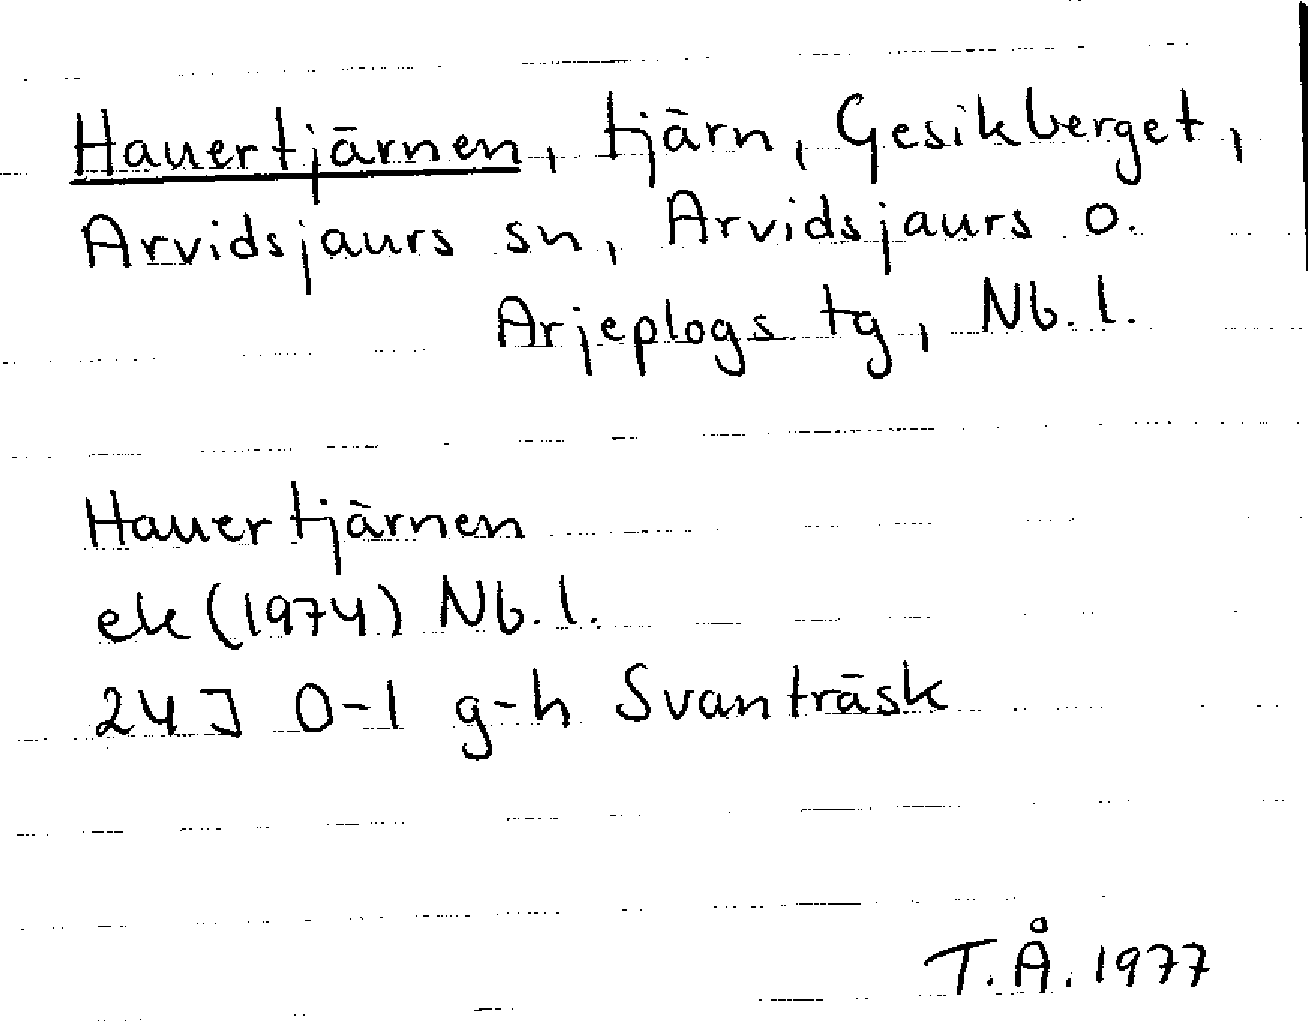 Hauertjärnen, tjärn, Gesikberget,
Arvidsjaurs sn, Arvidsjaurs o.
Arjeplogs tg, Nb. l.
Hauertjärnen
ek (1974) Nb. l.
24 J 0-1 g-h Svanträsk
T.Å. 1977